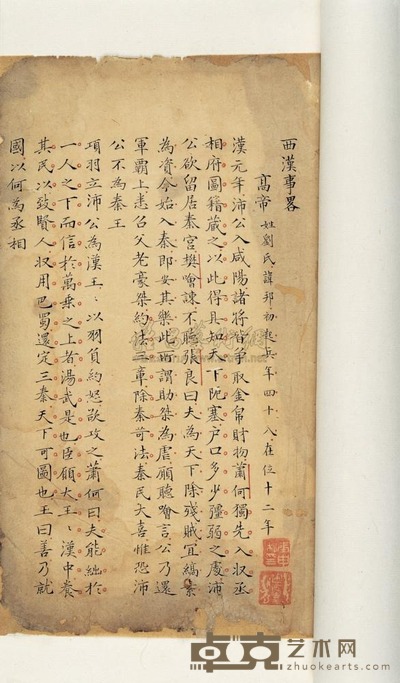 西漢事畧
高帝 姓劉氏諱邦初起兵年四十八在位十二年
漢元年沛公入咸陽諸將皆爭取金帛財物蕭何獨先入収丞
相府圖籍蔵之以此得具知天下阨塞户口多少彊弱之處沛
公欲留居秦宮樊噲諫不聽張良曰夫為天下除殘賊宜縞素
為資今始入秦即安其樂此所謂助桀為虐願聽噲言公乃還
軍霸上悉召父老豪桀約法三章除秦苛法秦民大喜惟恐沛
公不為秦王
項羽立沛公為漢王〻以羽負約怒欲攻之蕭何曰夫能絀於
一人之下而信於萬乗之上者湯武是也臣願大王〻漢中養
其民以致賢人収用巴蜀還定三秦天下可圖也王曰善乃就
國以何為丞相
卓克艺术网
www.zhuokearts.com